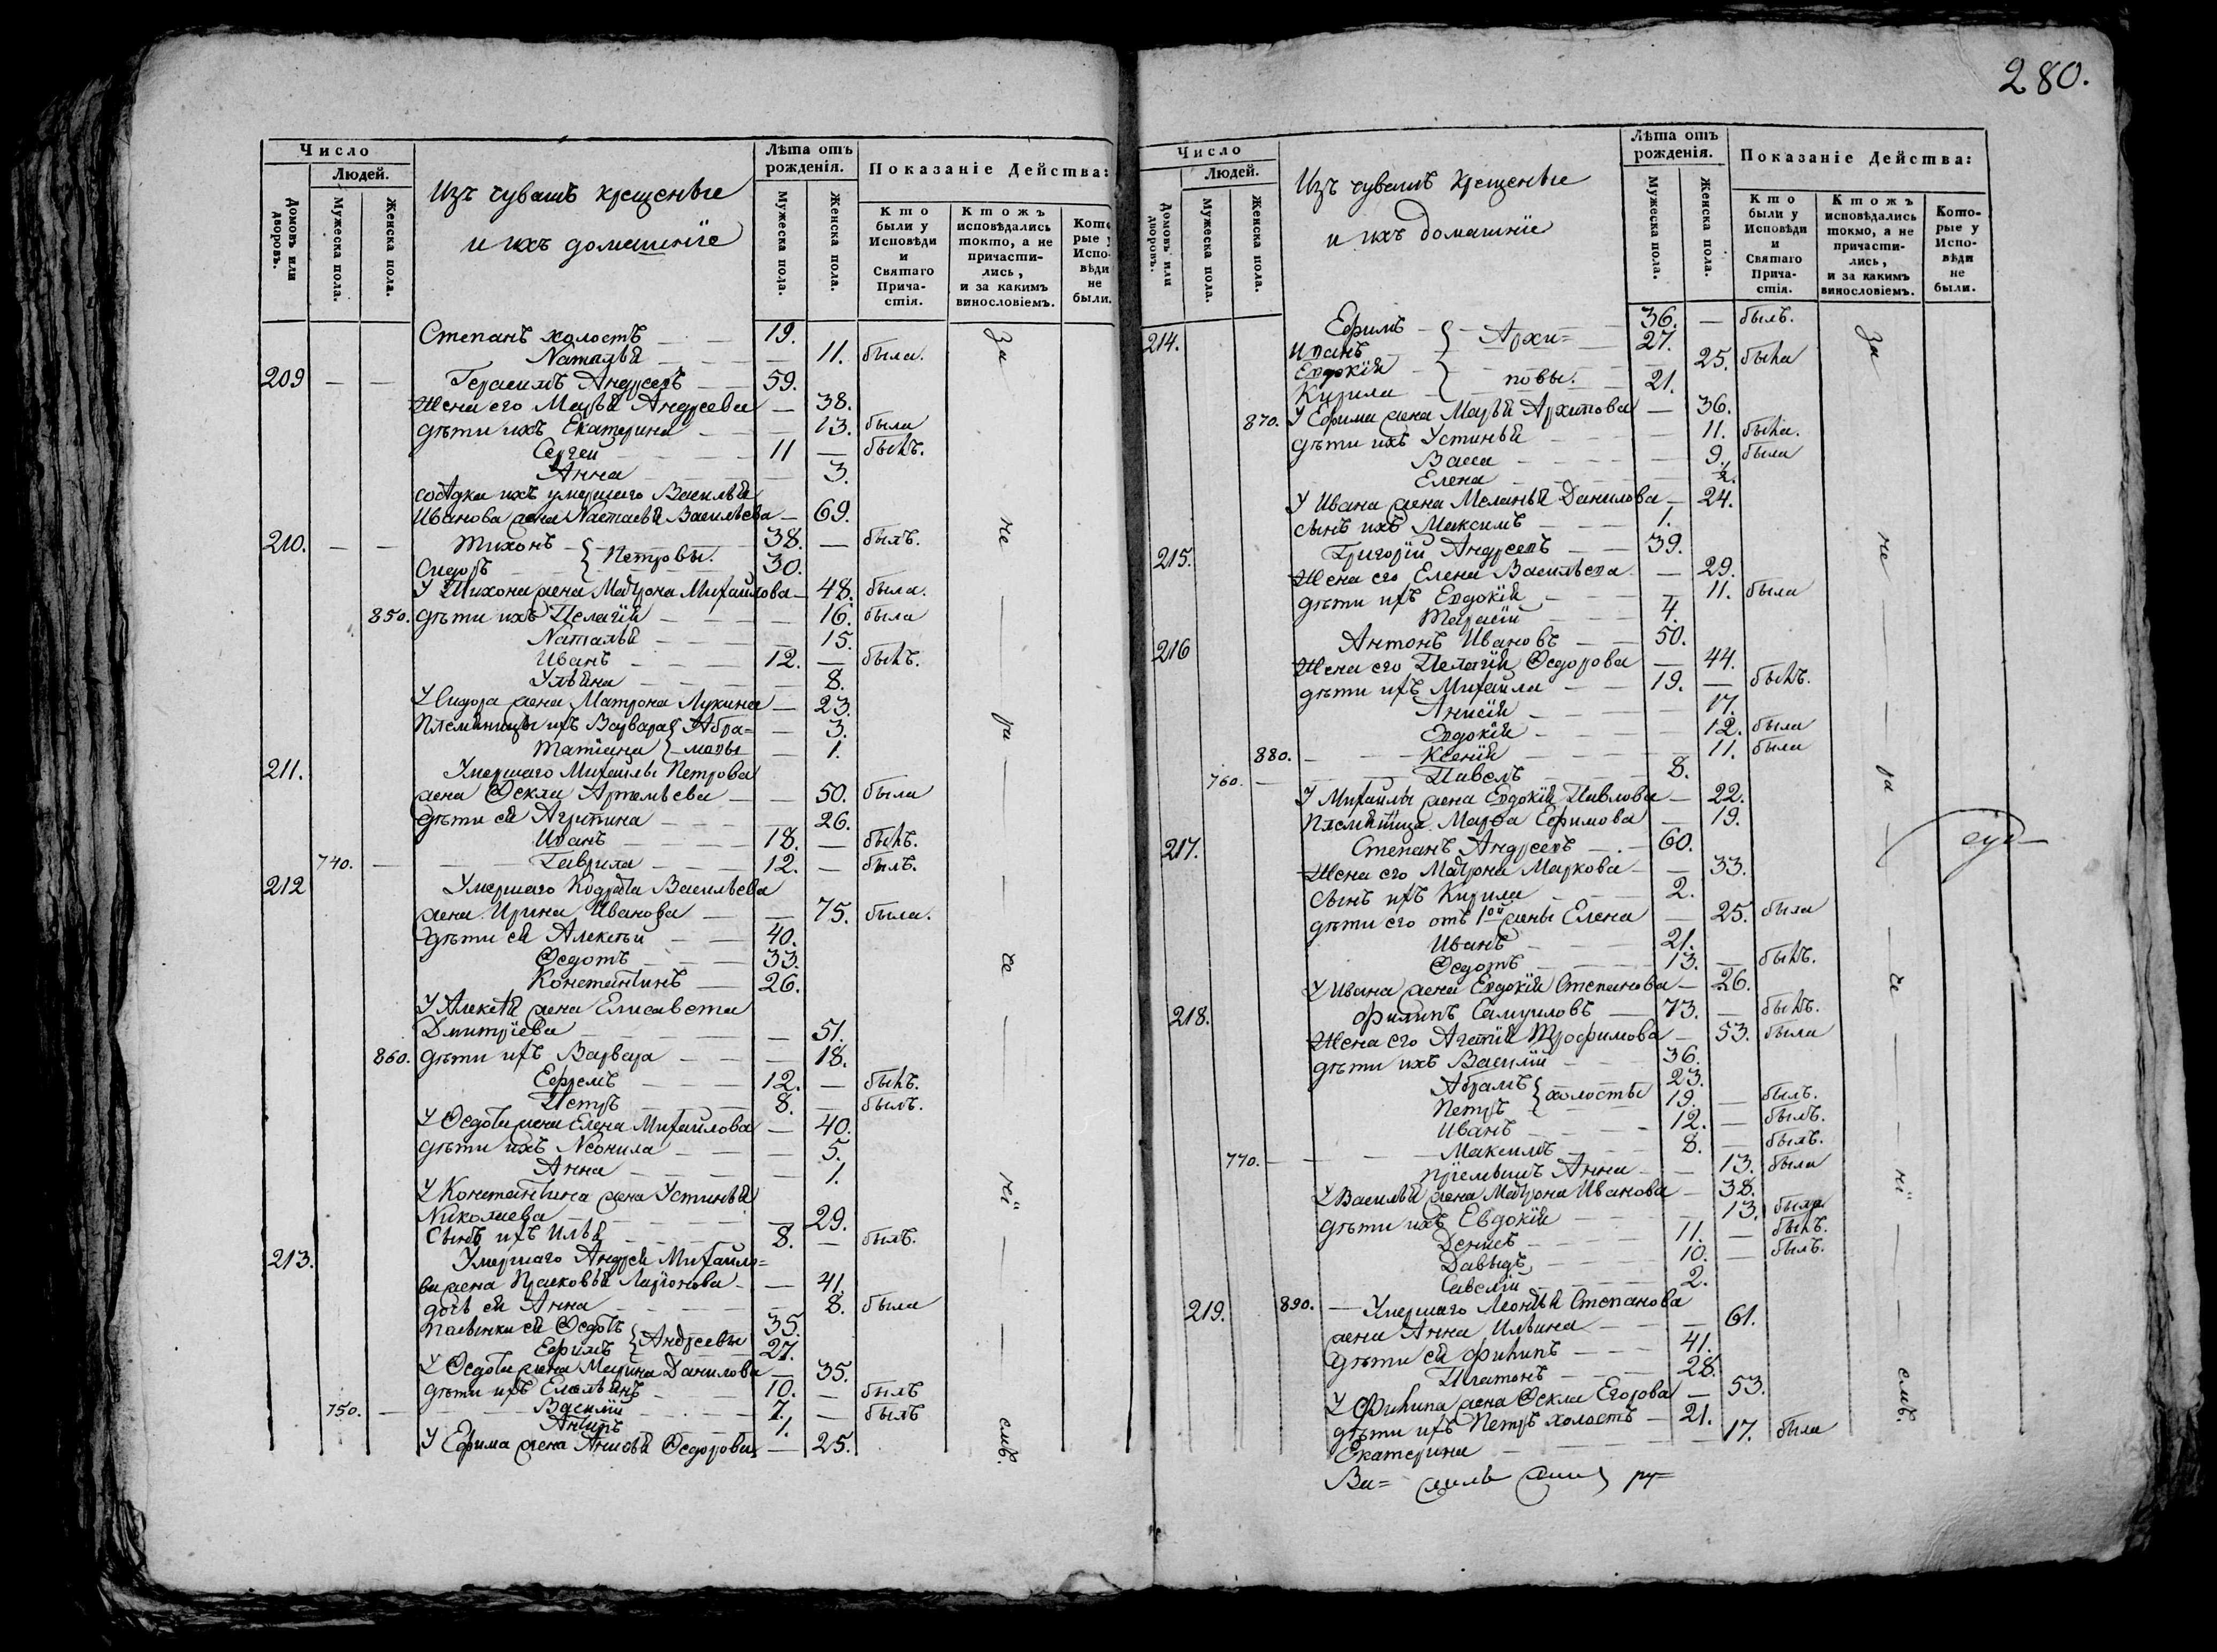 280.
Число
Людей.
Домовъ или дворовъ.
Мужеска пола.
Женска пола.
Изъ чувашъ крещеные
и ихъ домашніе
Лѣта отъ рожденія.
Мужеска пола.
Женска пола.
Показаніе Действа:
Кто были у Исповѣди и Святаго Прича-стія.
Ктожъ исповѣдались токмо, а не причасти-лись, и за какимъ винословіемъ.
Кото рые у Испо вѣди не были.
Степанъ холостъ 19.
Наталья 11. была.
209 Герасимъ Андреевъ 59.
Жена его Марья Андреева 38.
дѣти ихъ Екатерина 13. была
Сергей 11 былъ.
Анна 3.
сосѣдка ихъ умершаго Василья
Иванова жена Настасья Васильева 69.
210. Тихонъ } Петровы. 38. былъ.
Сидоръ 30.
У Тихона жена Матрона Михайлова 48. была.
850. дѣти ихъ Пелагія 16. была
Наталья 15.
Иванъ 12. былъ.
Ульяна 8.
У Сидора жена Матрона Лукина 23.
Племянницы ихъ Варвара } Абра= 3.
Татіана } мовы 1.
211. Умершаго Михайлы Петрова
жена Ѳекла Артемьева 50. была
дѣти ей Агрипина 26.
Иванъ 18. былъ.
740. Гаврила 12. былъ.
212 Умершаго Кодрата Васильева
жена Ирина Иванова 75. была.
дѣти ей Алексѣй 40.
Ѳедотъ 33.
Константинъ 26.
У Алексѣя жена Елисавета
Дмитріева 51.
860. дѣти ихъ Варвара 18.
Ефремъ 12. былъ.
Петръ 8. былъ.
У Ѳедота жена Елена Михайлова 40.
дѣти ихъ Неонила 5.
Анна 1.
У Константина жена Устинья
Николаева 29.
Сынъ ихъ Илья 8. былъ.
213. Умершаго Андрея Михайло=
ва жена Прасковья Ларіонова 41.
дочь ей Анна 8. была
пасынки ей Ѳедотъ } Андреевы 35.
Ефимъ 27.
У Ѳедота жена Марина Данилова 35.
дѣти ихъ Емельянъ 10. былъ
750. Василій 7. былъ
Антипъ 1.
У Ефима жена Анисья Ѳедорова 25.
За не ра че ні емъ.
Число
Людей.
Домовъ или дворовъ.
Мужеска пола.
Женска пола.
Изъ чувашъ крещеные
и ихъ домашніе
Лѣта отъ рожденія.
Мужеска пола.
Женска пола.
Показаніе Действа:
Кто были у Исповѣди и Святаго Прича-стія.
Ктожъ исповѣдались токмо, а не причасти-лись, и за какимъ винословіемъ.
Кото-рые у Испо-вѣди не были.
214. Ефимъ } Архи= 36. былъ.
Иванъ 27.
Евдокія 25. была
Кирила } повы. 21.
870. У Ефима жена Марья Архипова 36.
дѣти ихъ Устинья 11. была.
Васса 9. была
Елена 2.
У Ивана жена Меланья Данилова 24.
сынъ ихъ Максимъ 1.
215. Григорій Андреевъ 39.
Жена его Елена Васильева 29.
дѣти ихъ Евдокія 11. была
Тарасій 4.
216 Антонъ Ивановъ 50.
Жена его Пелагія Ѳедорова 44.
дѣти ихъ Михайла 19. былъ.
Анисія 17.
Евдокія 12. была
880. Ксенія 11. была
760. Павелъ 8.
У Михайлы жена Евдокія Павлова 22.
Племянница Марѳа Ефимова 19.
217. Степанъ Андреевъ 60.
Жена его Матрона Маркова 33.
Сынъ ихъ Кирила 2.
дѣти его отъ 1ой жены Елена 25. была
Иванъ 21.
Ѳедотъ 13. былъ.
У Ивана жена Евдокія Степанова 26.
218. Филипъ Самуиловъ 73. былъ.
Жена его Агафія Трофимова 53. была
дѣти ихъ Василій 36.
Абрамъ } холосты 23.
Петръ 19. былъ.
Иванъ 12. былъ.
770. Максимъ 8. былъ.
пріемышъ Анна 13. была
У Василья жена Матрона Иванова 38.
дѣти ихъ Евдокія 13. была
Денисъ 11. былъ.
Давыдъ 10. былъ.
Савелій 2.
219. 890. Умершаго Леонтья Степанова
жена Анна Ильина 61.
дѣти ей Филипъ 41.
Платонъ 28.
У Филипа жена Ѳекла Егорова 53.
дѣти ихъ Петръ холостъ 21.
Екатерина 17. была
За не ра че ні емъ.
Ва= силь